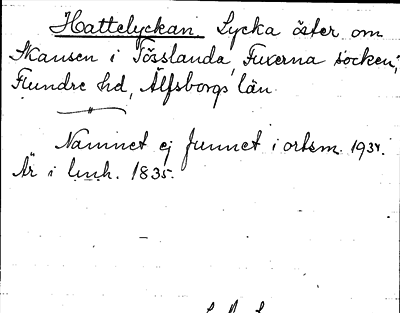 Hattelyckan Lycka öster om
Skansen i Tösslanda, Fuxerna socken,
Flundre hd, Älfsborgs län.
Namnet ej funnet i ortsm. 1934.
Är i lmh. 1835.